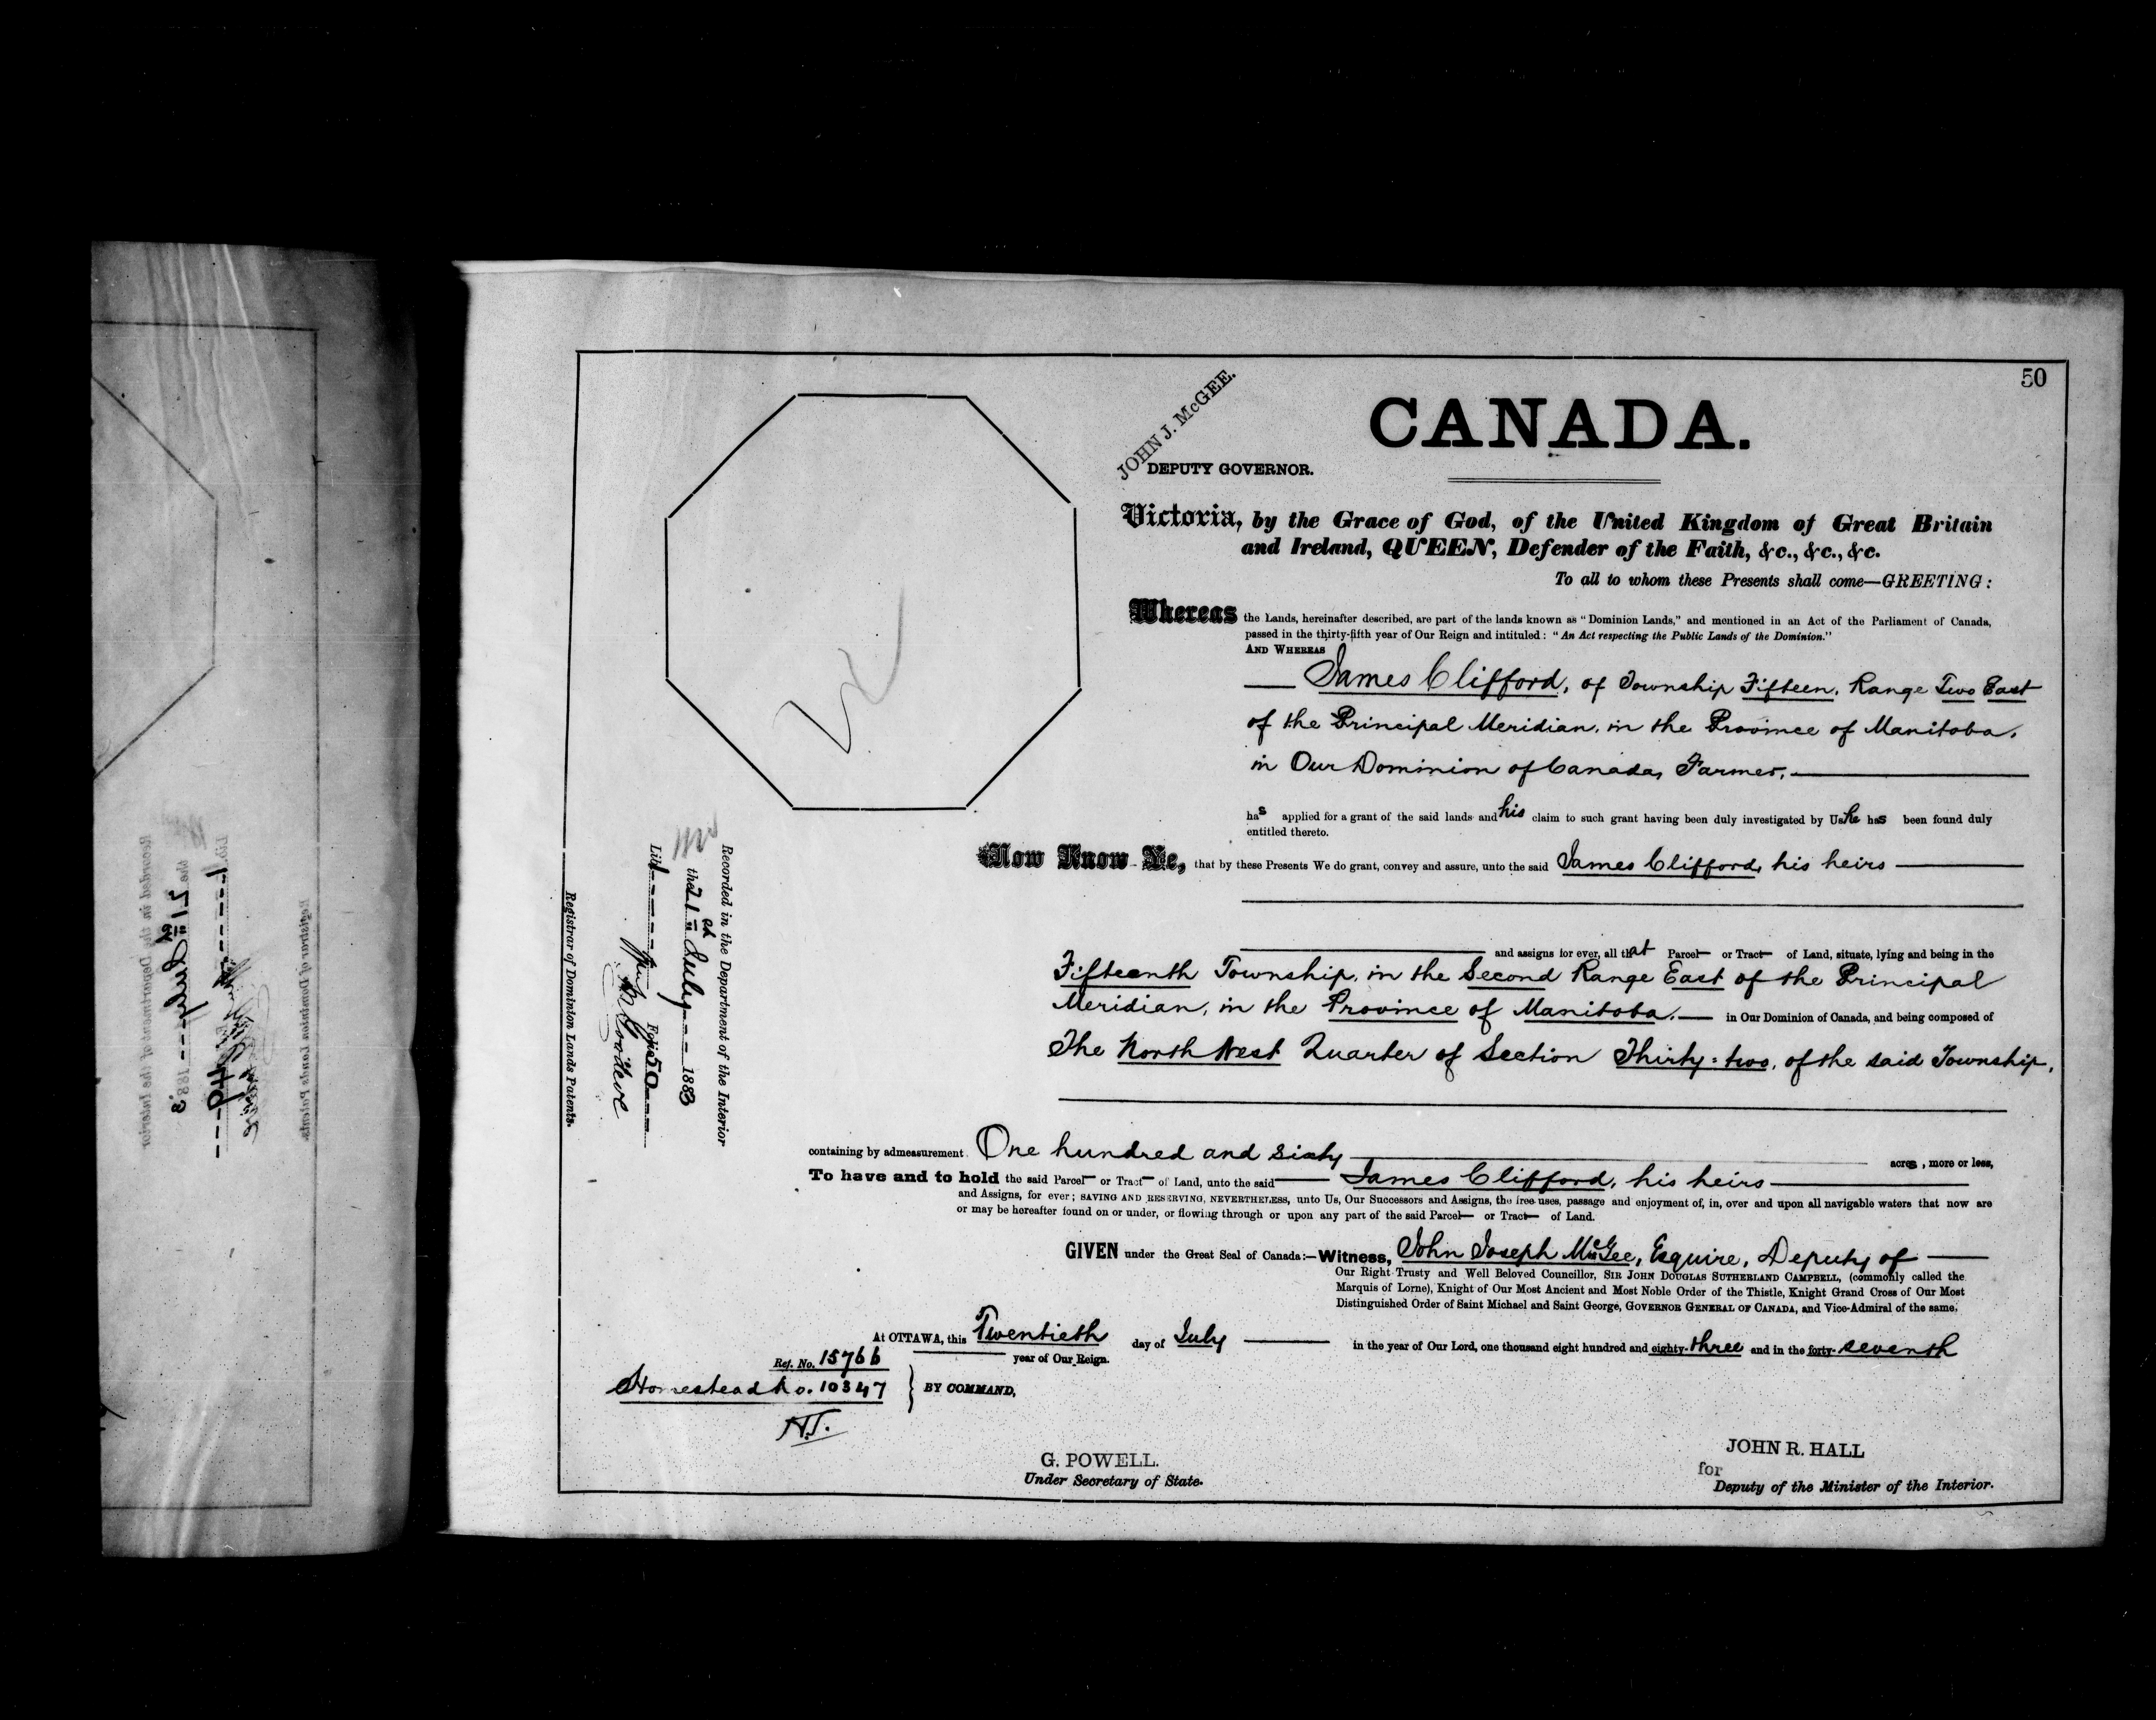 50
CANADA.
JOHN J. McGEE.
DEPUTY GOVERNOR.
Victoria, by the Grace of God, of the United Kingdom of Great Britain
and Ireland, QUEEN, Defender of the Faith, &c., &c., &c.
To all to whom these Presents shall come—GREETING:
Whereas the Lands, hereinafter described, are part of the lands known as "Dominion Lands," and mentioned in an Act of the Parliament of Canada,
passed in the thirty-fifth year of Our Reign and intituled: "An Act respecting the Public Lands of the Dominion."
AND WHEREAS
James Clifford, of Township Fifteen, Range Two East
of the Principal Meridian, in the Province of Manitoba,
in Our Dominion of Canada, Farmer,
has applied for a grant of the said lands and his claim to such grant having been duly investigated by Us he has been found duly
entitled thereto.
Now Know Ye, that by these Presents We do grant, convey and assure, unto the said James Clifford, his heirs
and assigns for ever, all that Parcel or Tract of Land, situate, lying and being in the
Fifteenth Township, in the Second Range East of the Principal
Meridian, in the Province of Manitoba, in Our Dominion of Canada, and being composed of
The North West Quarter of Section Thirty-two, of the said Township,
containing by admeasurement One hundred and sixty acres, more or less,
To have and to hold the said Parcel or Tract of Land, unto the said James Clifford, his heirs
and Assigns, for ever; SAVING AND RESERVING, NEVERTHELESS, unto Us, Our Successors and Assigns, the free uses, passage and enjoyment of, in, over and upon all navigable waters that now are
or may be hereafter found on or under, or flowing through or upon any part of the said Parcel or Tract of Land.
GIVEN under the Great Seal of Canada:—Witness, John Joseph McGee, Esquire, Deputy of
Our Right Trusty and Well Beloved Councillor, SIR JOHN DOUGLAS SUTHERLAND CAMPBELL, (commonly called the
Marquis of Lorne), Knight of Our Most Ancient and Most Noble Order of the Thistle, Knight Grand Cross of Our Most
Distinguished Order of Saint Michael and Saint George, GOVERNOR GENERAL OF CANADA, and Vice-Admiral of the same,
At OTTAWA, this Twentieth day of July in the year of Our Lord, one thousand eight hundred and eighty-three and in the forty-seventh
year of Our Reign.
Ref. No. 15766
Homestead No. 10347
BY COMMAND,
H.T.
G. POWELL.
Under Secretary of State.
JOHN R. HALL
for
Deputy of the Minister of the Interior.
Recorded in the Department of the Interior
the 21st July 1883
Lib 1 Folio 50
Registrar of Dominion Lands Patents.